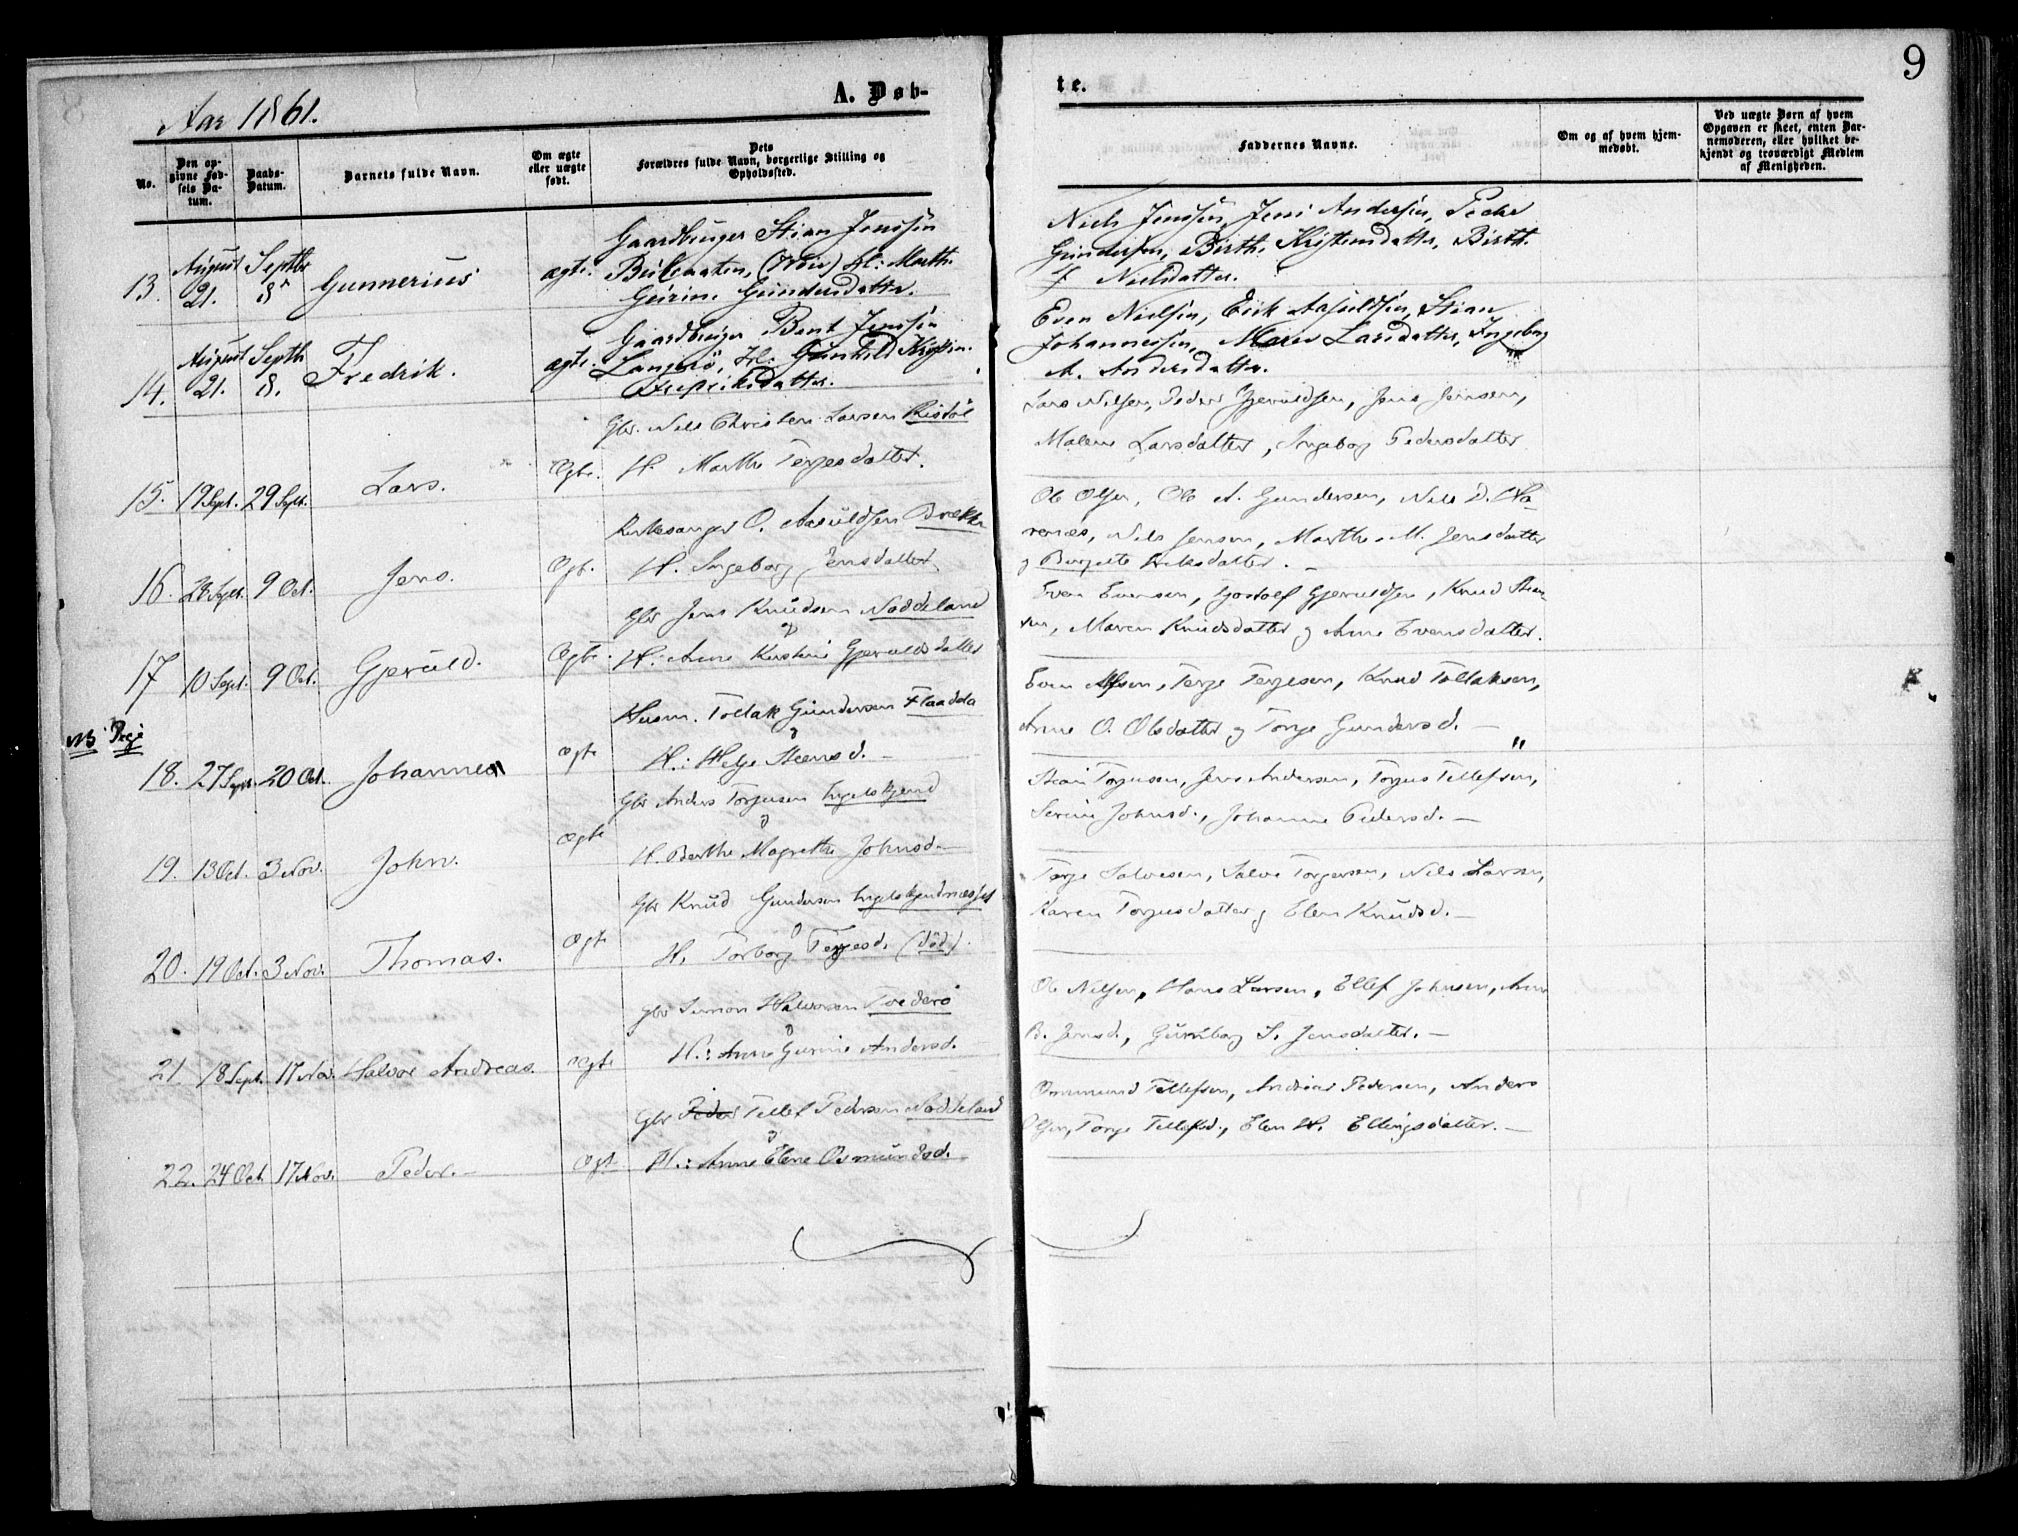 9
Aar 1861.
A. Døb-
te.
No.
Den op-
givne Fød-
sels Da-
tum.
Daabs-
Datum.
Barnets fulde Navn.
Om ægte
eller uægte
født.
Dets
Forældres fulde Navn, borgerlige Stilling og
Opholdssted.
Faddernes Navne.
Om og af hvem hjem-
medøbt.
Ved uægte Børn af hvem
Opgaven er skeet, enten Bar-
nemoderen, eller hvilket be-
kjendt og troværdigt Medlem
af Menigheden.
13.
August
21.
Septbr
8
Gunnerius
ægte.
Gaardbruger Stian Jenssen
Marth.
Gundersdatter.
Niels Jenssen, Jens Andersen, Peder
Gundersen, Birth. Kristensdatter, Birth.
Nielsdatter.
14.
August
21.
Septb
8.
Fredrik.
ægte.
Gaardbruger Bent Jenssen
Gunhild
Fredriksdatter.
Even Nielsen, Erik Aasuldsen, Stian
Johannessen, Maren Larsdatter, Ingeborg
A. Andersdatter.
15.
19 Sept.
29 Sept.
Lars.
Ægte.
Gbr. Nils Christen Larsen Risdøl
H. Marthe Terjesdatter.
Lars Nilsen, Peder Gjeruldsen, Jens Jensen,
Malene Larsdatter, Ingeborg Pedersdatter
16.
9 Oct.
Jens.
Ægt.
Kirkesanger O. Aasuldsen Brække
H. Ingeborg Jensdatter
Ole Olsen, Ole A. Gundersen, Nils D. Ha-
renæs, Nils Jensen, Marthe M. Jensdatter
17
10 Sept.
9 Oct.
Gjeruld.
Ægte.
Gbr Jens Knudsen Noddeland
H.: Anne Kirstine Gjerulds datter
Even Evensen, Tjostolf Gjeruldsen, Knud Stian-
sen, Maren Knudsdatter og Anne Evensdatter.
NB
18.
27 Sept.
20 Oct.
Johannes
Ægte
Husm. Tollak Gundersen Flaadda
H.: Helje Steensd. –
Even Alfsen, Terje Terjesen, Knud Tollaksen,
Anne O. Olsdatter og Torje Gundersd. –
19.
13 Oct.
3 Nov.
John.
Ægte
Gbr Anders Torjusen Ingelskjend
H. Berthe Magrethe Johnsd.
Stian Torjusen, Jens Andersen, Torjus Tellefsen,
Serine Johnsd., Johanne Pedersd. –
20.
19 Oct.
3 Nov.
Thomas.
Ægte
Gbr Knud Gundersen Ingelskjendnæsset
H. Torborg Terjesd. (død).
Terje Salvesen, Salve Torgersen, Nils Larsen,
Karen Torjusdatter og Elen Knudsd. –
21.
18 Sept.
17 Nov.
Halvor Andreas.
Ægte
Gbr Simon Halvorsen Tvederø
H.: Anne Gurine Andersd.
Ole Nilsen, Hans Larsen, Ellef Johnsen, Anne
B. Jensd., Gunborg S. Jensdatter. –
22.
24 Oct.
17 Nov.
Peder. –
Ægt
Gbr Peder Tellef Pedersen Noddeland
H.: Anne Elene Osmundsd.
Ommund Tellefsen, Andreas Pedersen, Anders
Olsen, Torje Tellefsd., Elen H. Ellingsdatter. –